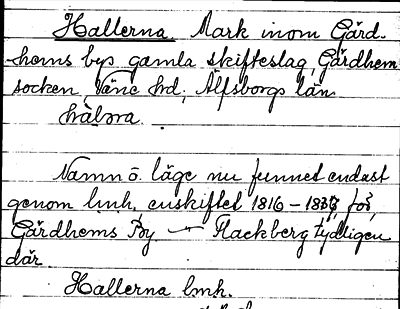 Hallerna Mark inom Gård-
hems bys gamla skifteslag, Gårdhem
socken, Väne hd, Älfsborgs län.
hàl₂ɔra.
Namn o. läge nu funnet endast
genom lmh. enskiftet 1816 – 1838 för
Gårdhems By — Flackberg tydligen
där
Hallerna lmh.